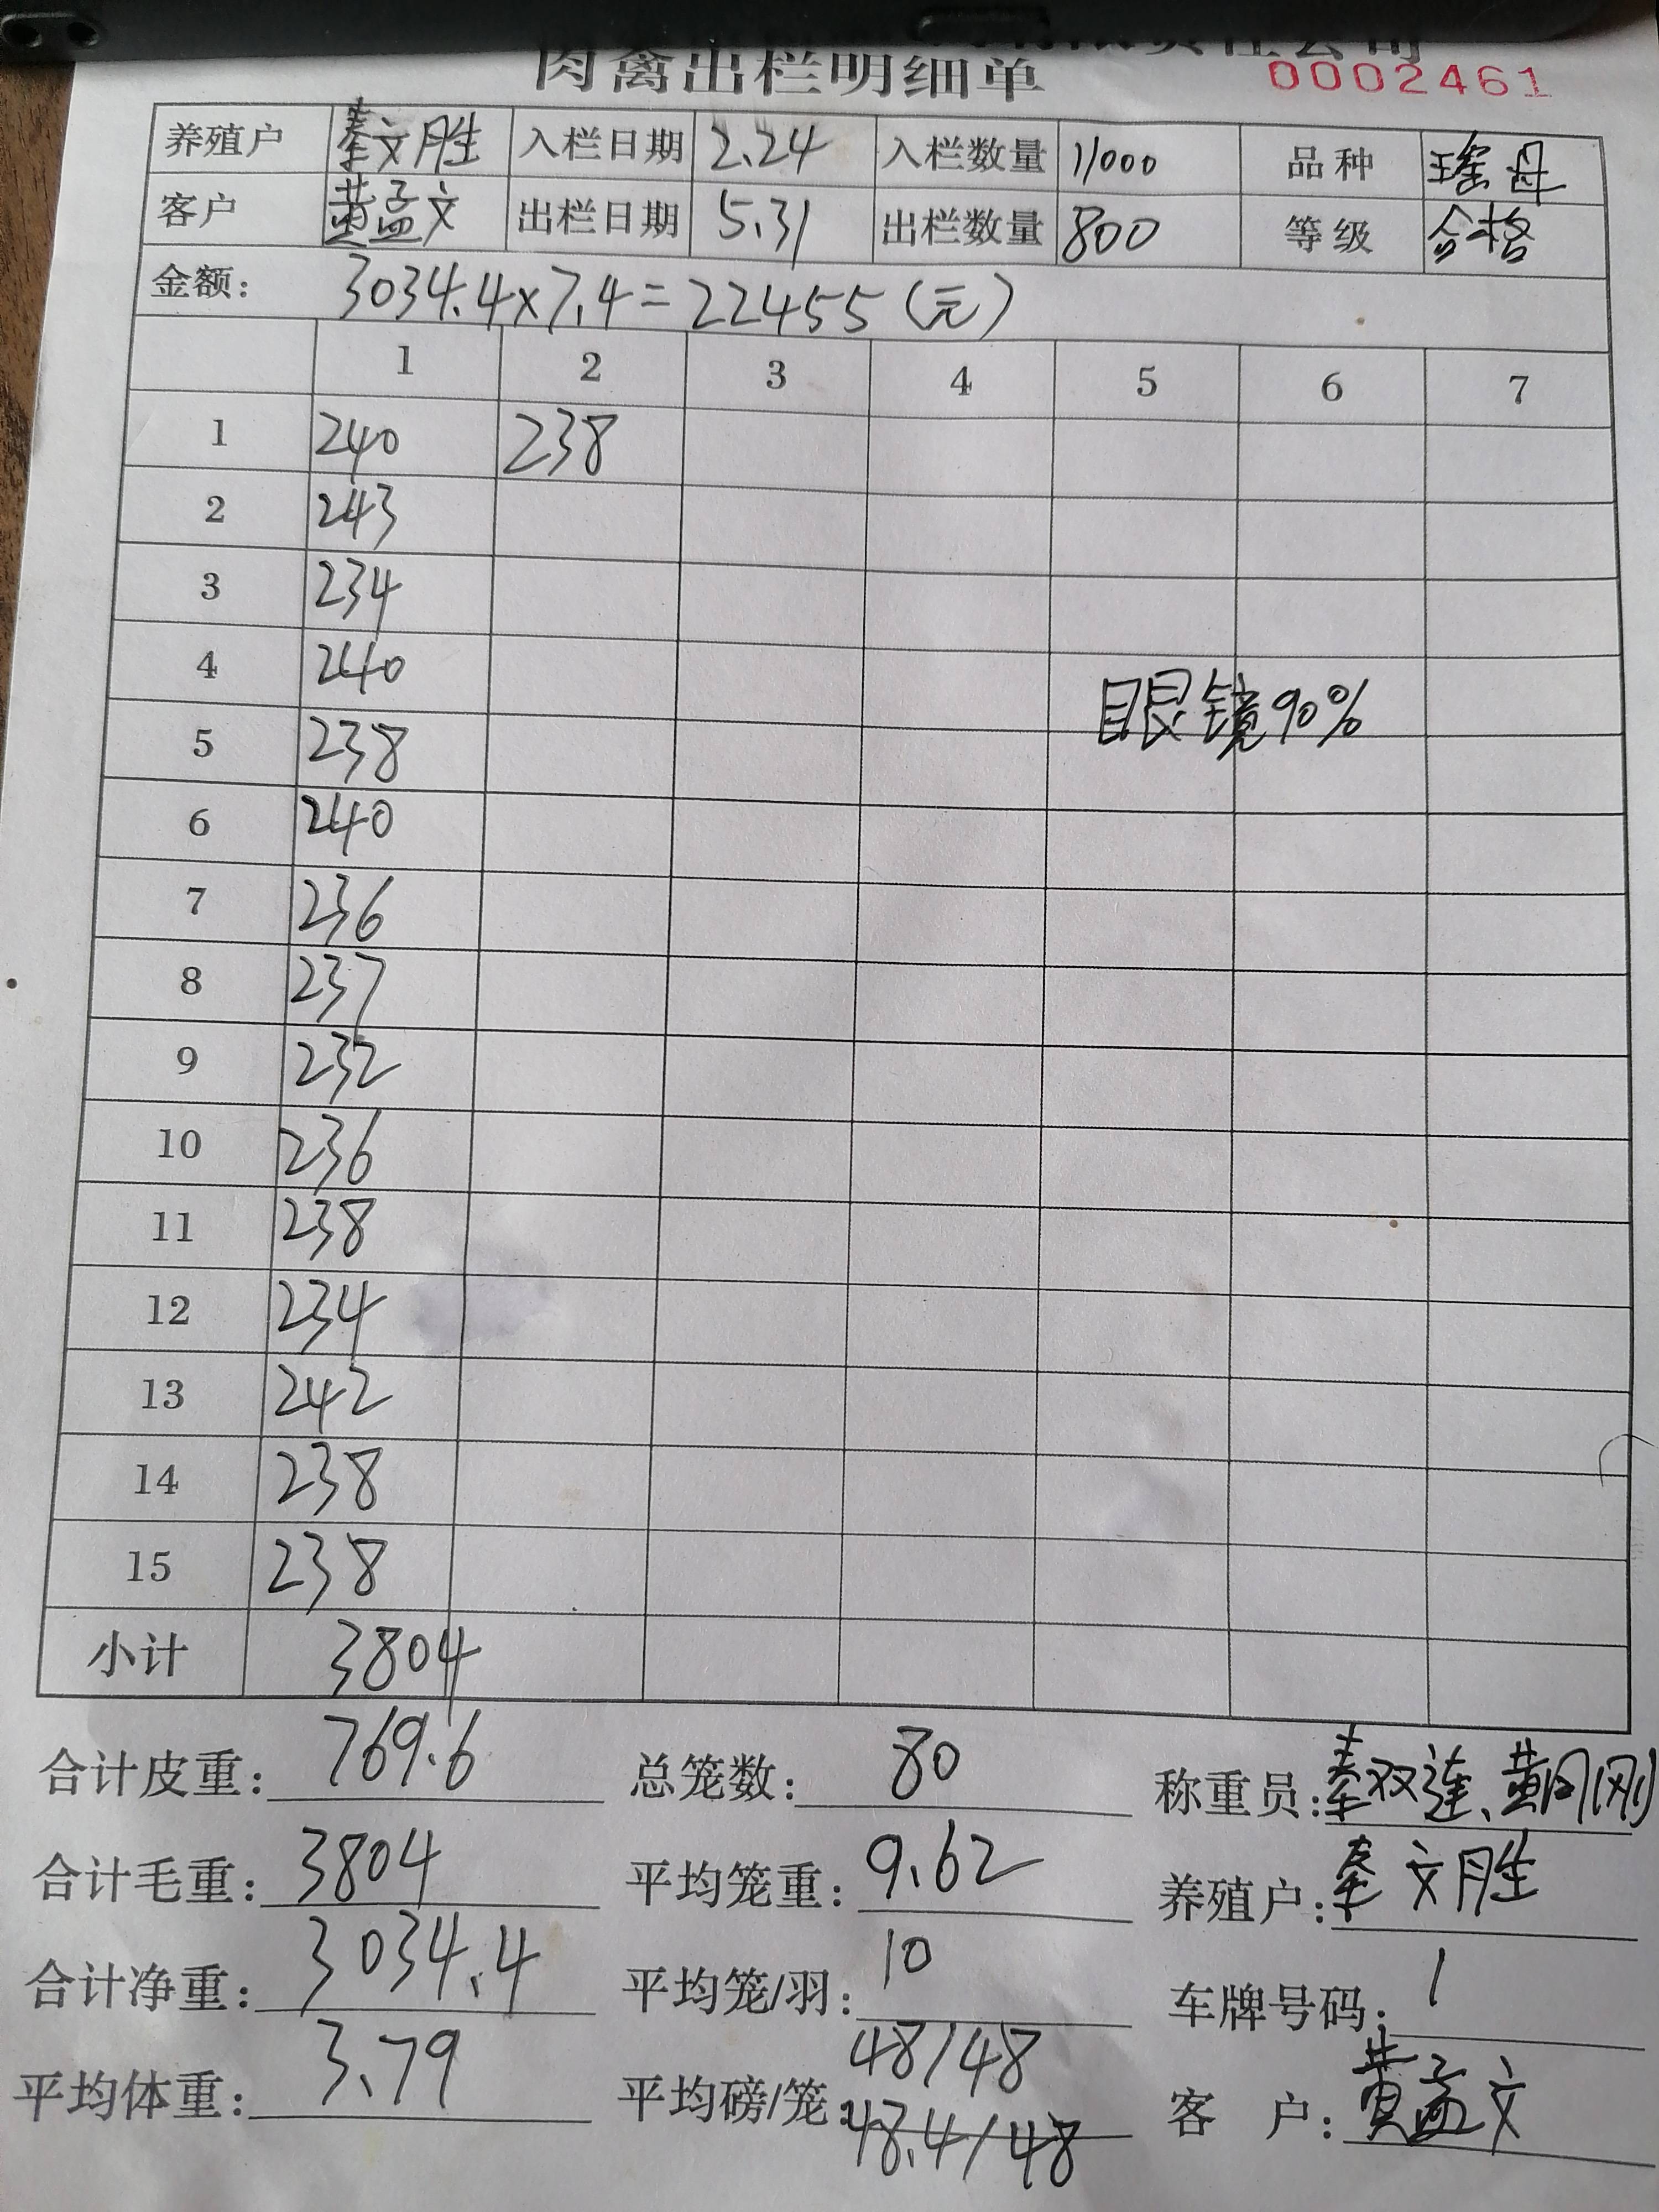 肉禽出栏明细单 0002461
养殖户 秦文胜 入栏日期 2.24 入栏数量 11000 品种 瑶母
客户 黄孟文 出栏日期 5.31 出栏数量 800 等级 合格
金额: 3034.4×7.4=22455(元)
1 2 3 4 5 6 7
1 240 238
2 243
3 234
4 240
眼镜90%
5 238
6 240
7 236
8 237
9 232
10 236
11 238
12 234
13 242
14 238
15 238
小计 3804
合计皮重: 769.6 总笼数: 80 称重员: 秦双连、黄同刚
合计毛重: 3804 平均笼重: 9.62 养殖户: 秦文胜
合计净重: 3034.4 平均笼/羽: 10 车牌号码: 1
平均体重: 3.79 平均磅/笼: 48/48 客 户: 黄孟文
48.4/48